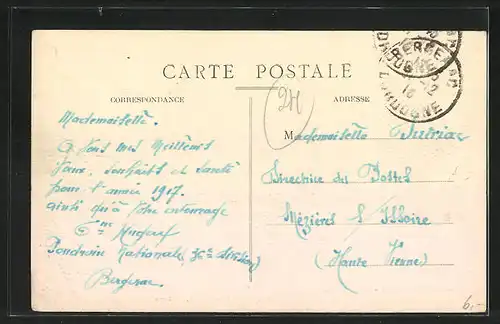 CARTE POSTALE
CORRESPONDANCE
ADRESSE
24
Mademoiselle.
à Vous mes Meilleurs
Vœux, Souhaits et Santé
pour l'année 1917.
ainsi qu'à votre entourage
Poudrerie Nationale
Bergerac
Mademoiselle
Directrice des Postes
Mézières s/ Issoire
(Haute Vienne)
BERGERAC
DORDOGNE
6.-